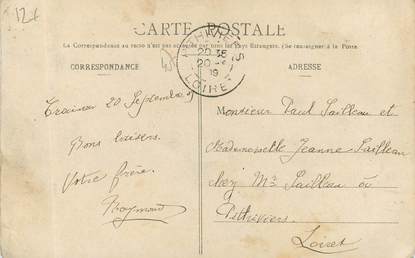 127
CARTE POSTALE
La Correspondance au recto n'est pas acceptée par tous les Pays Étrangers. (Se renseigner à la Poste.
CORRESPONDANCE
ADRESSE
PITHIVIERS
20 35
20 - 9
LOIRET
20 Septembre
Bons baisers.
Votre frère.
Raymond
Monsieur Paul Sailleau et
Mademoiselle Jeanne Sailleau
chez Mr Sailleau à
Pithiviers
Loiret